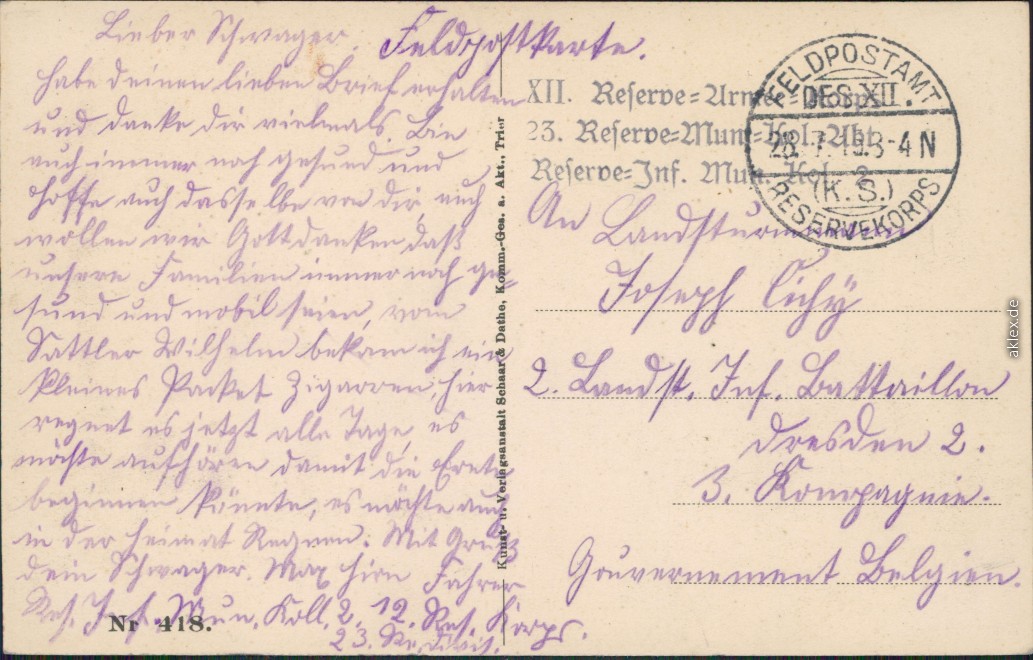 Lieber Schwager.
habe deinen lieben Brief erhalten
und danke dir vielmals. Bin
auch immer noch gesund und
hoffe auch dasselbe von dir, auch
wollen wir Gott danken, daß
unsere Familien immer noch ge-
sund und mobil seien, vom
Sattler Wilhelm bekam ich ein
kleines Packet Zigarren, hier
regnet es jetzt alle Tage, es
möchte aufhören damit die Ernte
beginnen könnte, es möchte auch
in der Heimat Regnen. Mit Gruß
dein Schwager. Max Fahrer
Res. Inf. Mun. Koll. 2. 12. Res. Korps.
23. Re. Divis.
Nr 418.
Kunst- u. Verlagsanstalt Schaar & Dathe, Komm.-Ges. a. Akt., Trier
Feldpostkarte.
XII. Reserve=Armee=Korps
23. Reserve=Mun.=Kol.=Abt.
Reserve=Inf. Mun. Kol. 2
FELDPOSTAMT
DES XII.
28.7.15.3-4N
(K.S.)
RESERVEKORPS
An Landsturmmann
Joseph Cichy
2. Landst. Inf. Battaillon
Dresden 2.
3. Kompagnie.
Gouvernement Belgien.
aklex.de